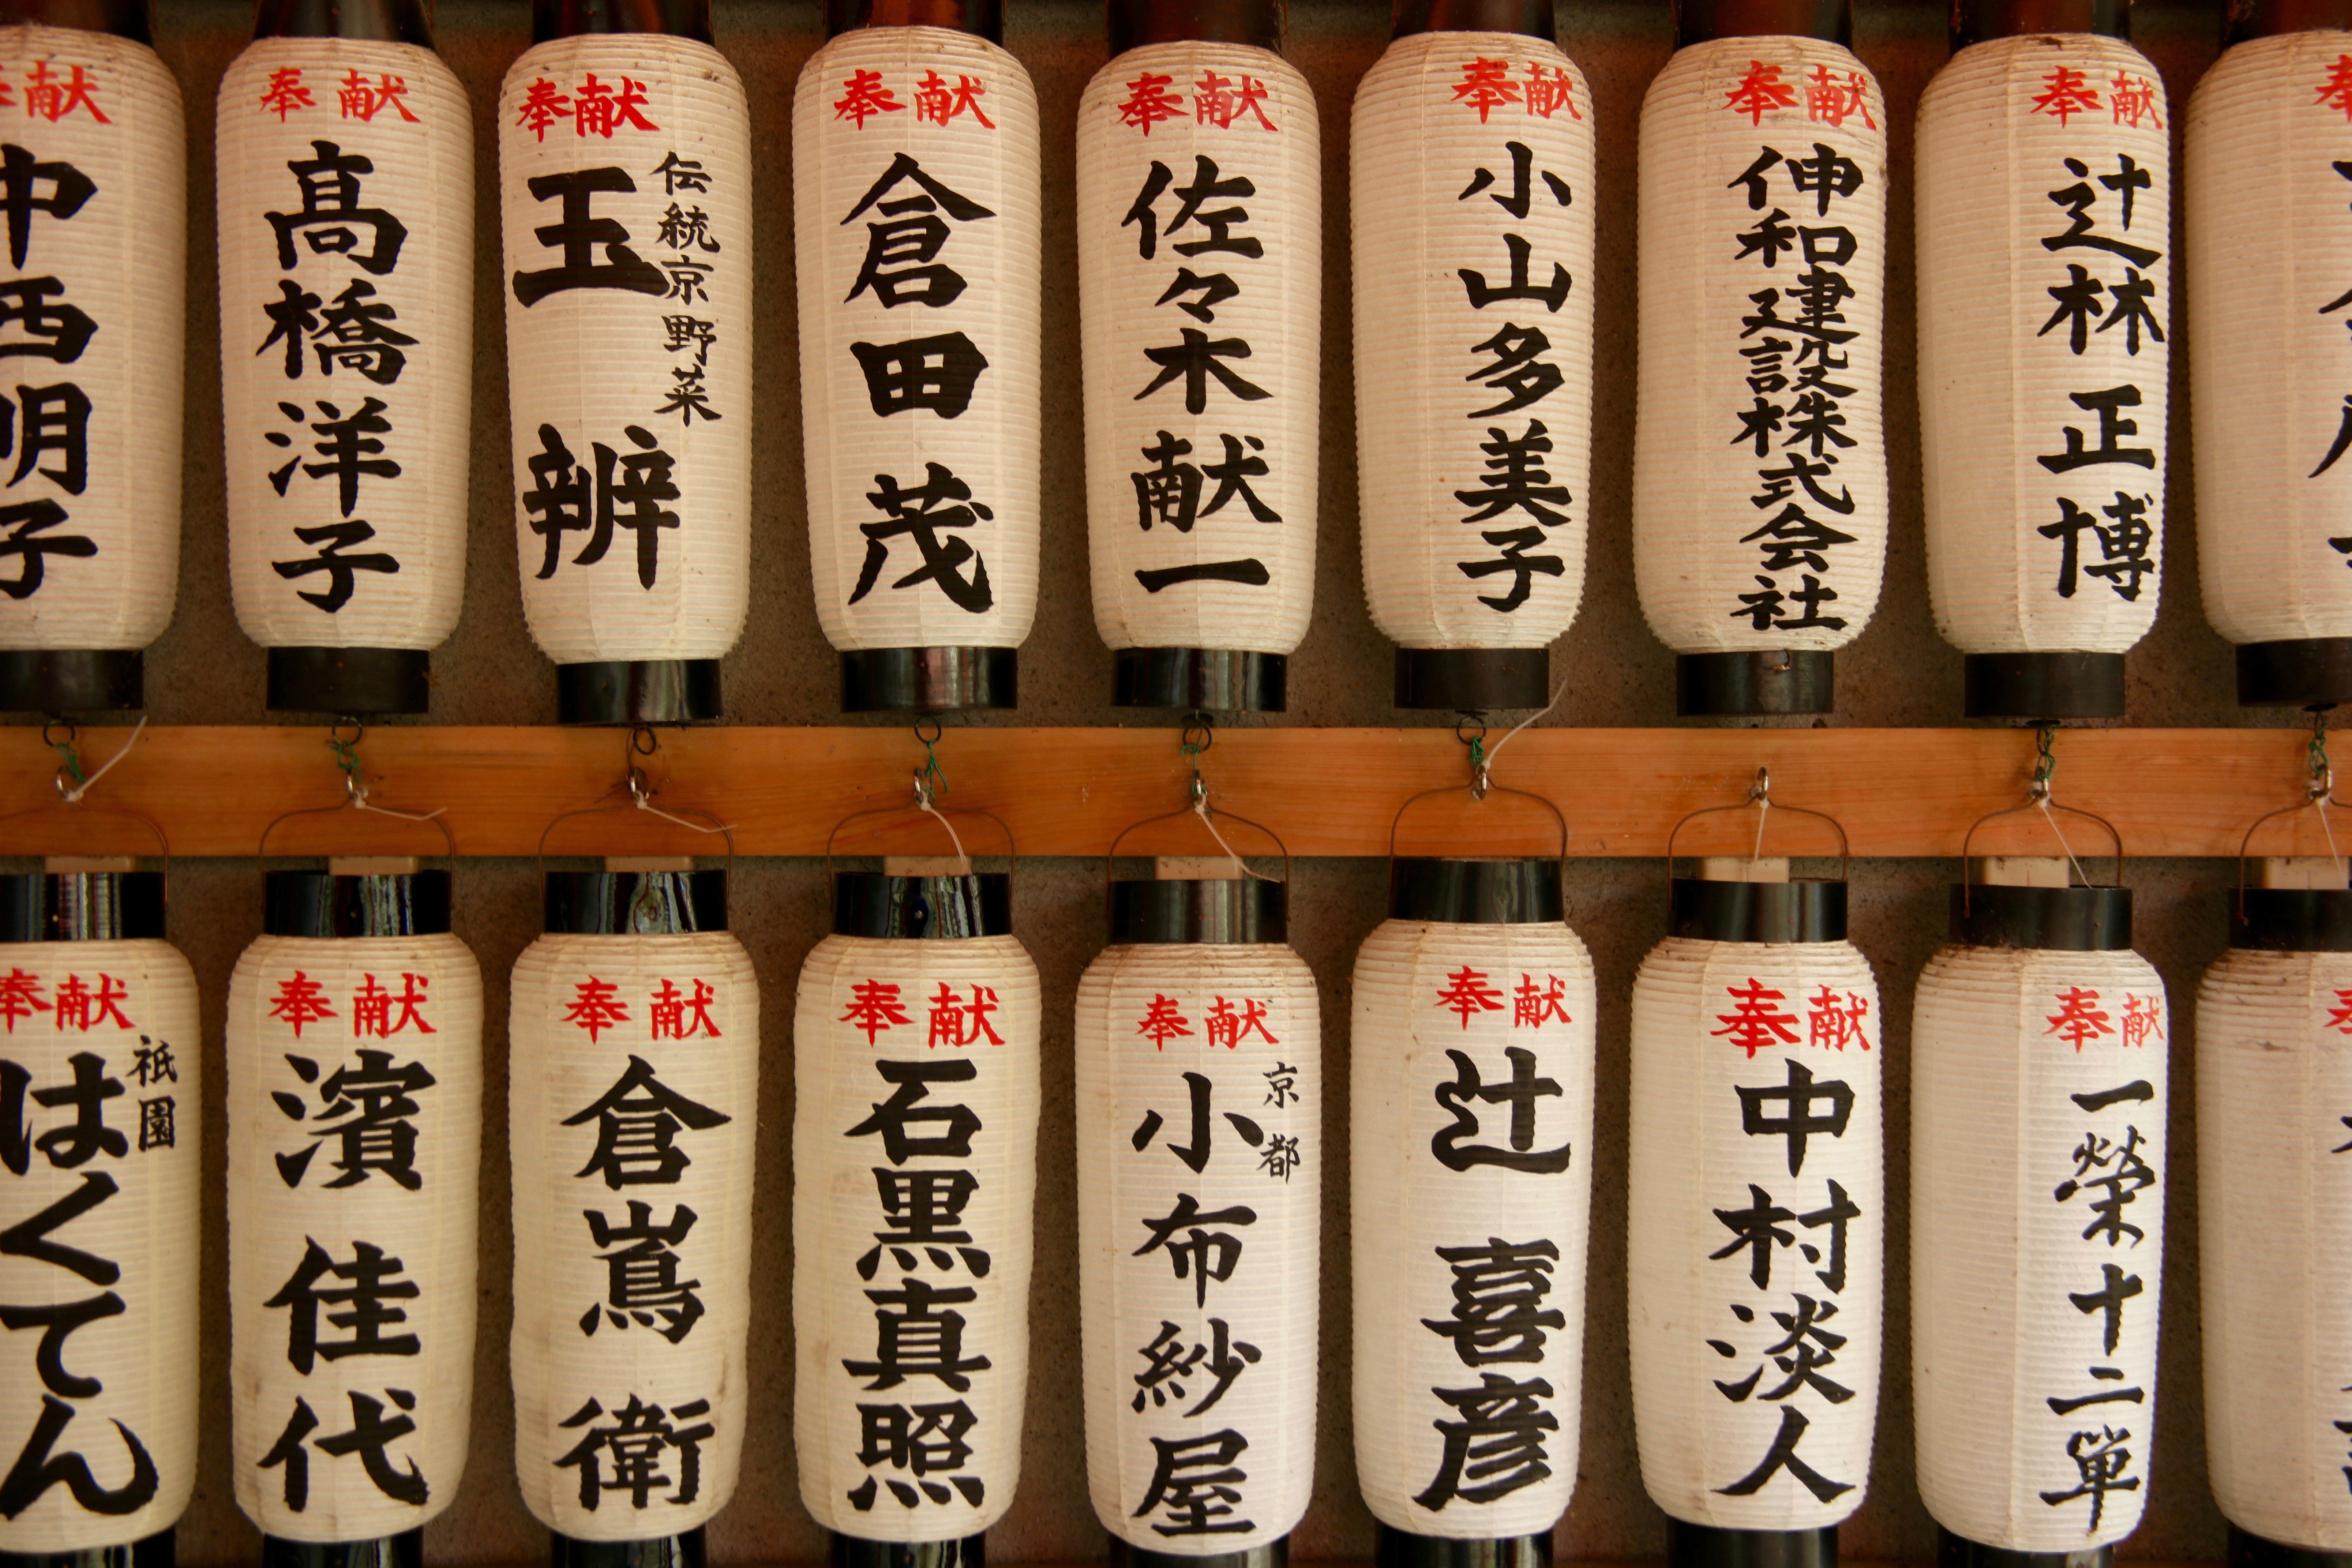 奉献
中西明子
奉献
高橋洋子
奉献
伝統京野菜
玉辨
奉献
倉田茂
奉献
佐々木献一
奉献
小山多美子
奉献
伸和建設株式会社
奉献
辻林正博
奉献
祇園
はくてん
奉献
濱佳代
奉献
倉嶌衛
奉献
石黒真照
奉献
京都
小布紗屋
奉献
辻喜彦
奉献
中村淡人
奉献
一榮十二単